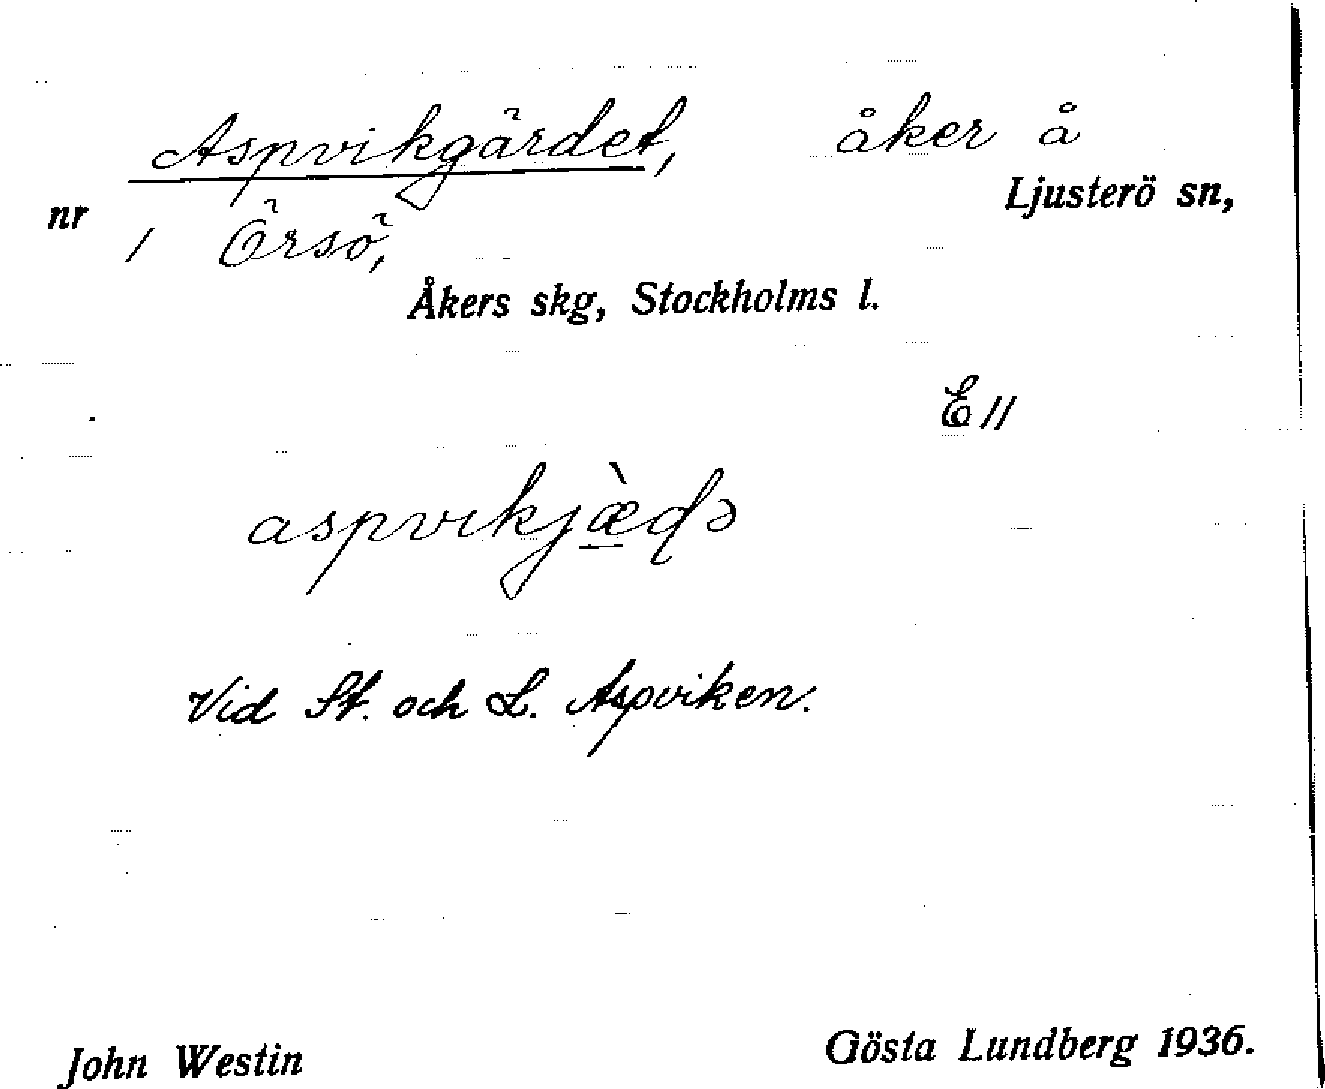 Aspvikgärdet, åker å
Ljusterö sn,
nr 1 Örsö,
Åkers skg, Stockholms l.
E 11
aspvikjæ̀ḍə
Vid St. och L. Aspviken.
John Westin
Gösta Lundberg 1936.